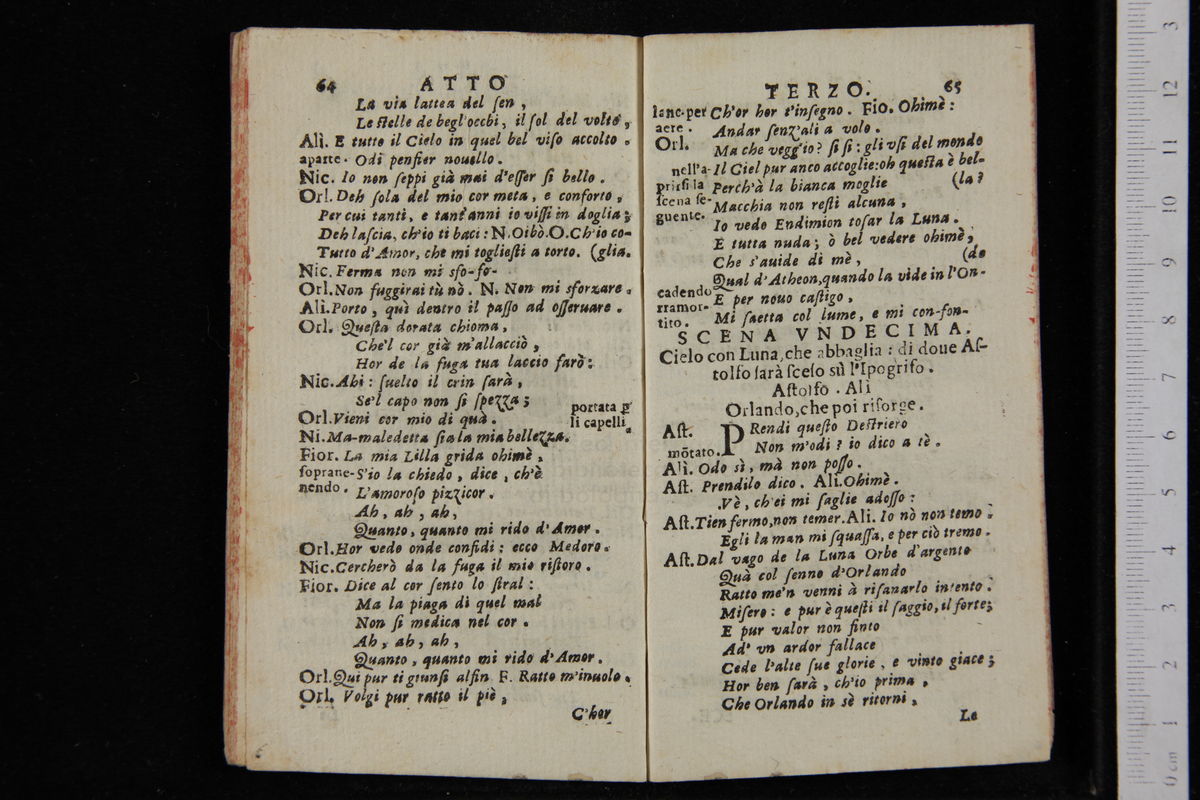 64 ATTO
La via lattea del ſen,
Le ſtelle de begl'occhi, il ſol del volto,
Alì. E tutto il Cielo in quel bel viſo accolto.
aparte. Odi penſier nouello.
Nic. Io non ſeppi già mai d'eſſer ſi bello.
Orl. Deh ſola del mio cor meta, e conforto,
Per cui tanti, e tant'anni io viſſi in doglia;
Deh laſcia, ch'io ti baci: N. Oibò. O. Ch'io co-
Tutto d'Amor, che mi toglieſti a torto. (glia.
Nic. Ferma non mi sfo-fo-
Orl. Non fuggirai tù nò. N. Non mi sforzare.
Alì. Porto, quì dentro il paſſo ad oſſeruare.
Orl. Queſta dorata chioma,
Che'l cor già m'allacciò,
Hor de la fuga tua laccio farò:
Nic. Ahi: ſuelto il crin ſarà,
Se'l capo non ſi ſpezza;
portata ꝑ
Orl. Vieni cor mio di quà.
li capelli
Ni. Ma-maledetta ſia la mia bellezza.
Fior. La mia Lilla grida ohimè,
ſoprane- S'io la chiedo, dice, ch'è
nendo. L'amoroſo pizzicor.
Ah, ah, ah,
Quanto, quanto mi rido d'Amor.
Orl. Hor vedo onde confidi; ecco Medoro.
Nic. Cercherò da la fuga il mio riſtoro.
Fior. Dice al cor ſento lo ſtral:
Ma la piaga di quel mal
Non ſi medica nel cor.
Ah, ah, ah,
Quanto, quanto mi rido d'Amor.
Orl. Qui pur ti giunſi alfin F. Ratto m'inuolo.
Orl. Volgi pur ratto il piè,
C'hor
TERZO. 65
lanc. per Ch'or hor t'inſegno. Fio. Ohimè:
aere. Andar ſenz'ali a volo.
Orl. Ma che vegg'io? ſi ſi: gli vſi del mondo
nell'a- Il Ciel pur anco accoglie: oh queſta è bel-
prirſi la Perch'à la bianca moglie (la?
ſcena ſe- Macchia non reſti alcuna,
guente. Io vedo Endimion toſar la Luna.
E tutta nuda; ò bel vedere ohimè,
Che s'auide di mè, (de
Qual d'Atheon, quando la vide in l'On-
cadendo E per nouo caſtigo,
rramor- Mi ſaetta col lume, e mi con-fon-
tito.
SCENA VNDECIMA.
Cielo con Luna, che abbaglia: di doue Aſ-
tolfo ſarà ſceſo sù l'Ipogrifo.
Aſtolfo. Alì
Orlando, che poi riſorge.
Aſt. PRendi queſto Deſtriero
mōtato. Non m'odi? io dico a tè.
Alì. Odo sì, mà non poſſo.
Aſt. Prendilo dico. Alì. Ohimè.
Vè, ch'ei mi ſaglie adoſſo:
Aſt. Tien fermo, non temer. Ali. Io nò non temo:
Egli la man mi ſquaſſa, e per ciò tremo.
Aſt. Dal vago de la Luna Orbe d'argento
Quà col ſenno d'Orlando
Ratto me'n venni à riſanarlo intento:
Miſero: e pur è queſti il ſaggio, il forte;
E pur valor non finto
Ad' vn ardor fallace
Cede l'alte ſue glorie, e vinto giace;
Hor ben ſarà, ch'io prima,
Che Orlando in sè ritorni,
Le
13
12
11
10
9
8
7
6
5
4
3
2
1
0 cm